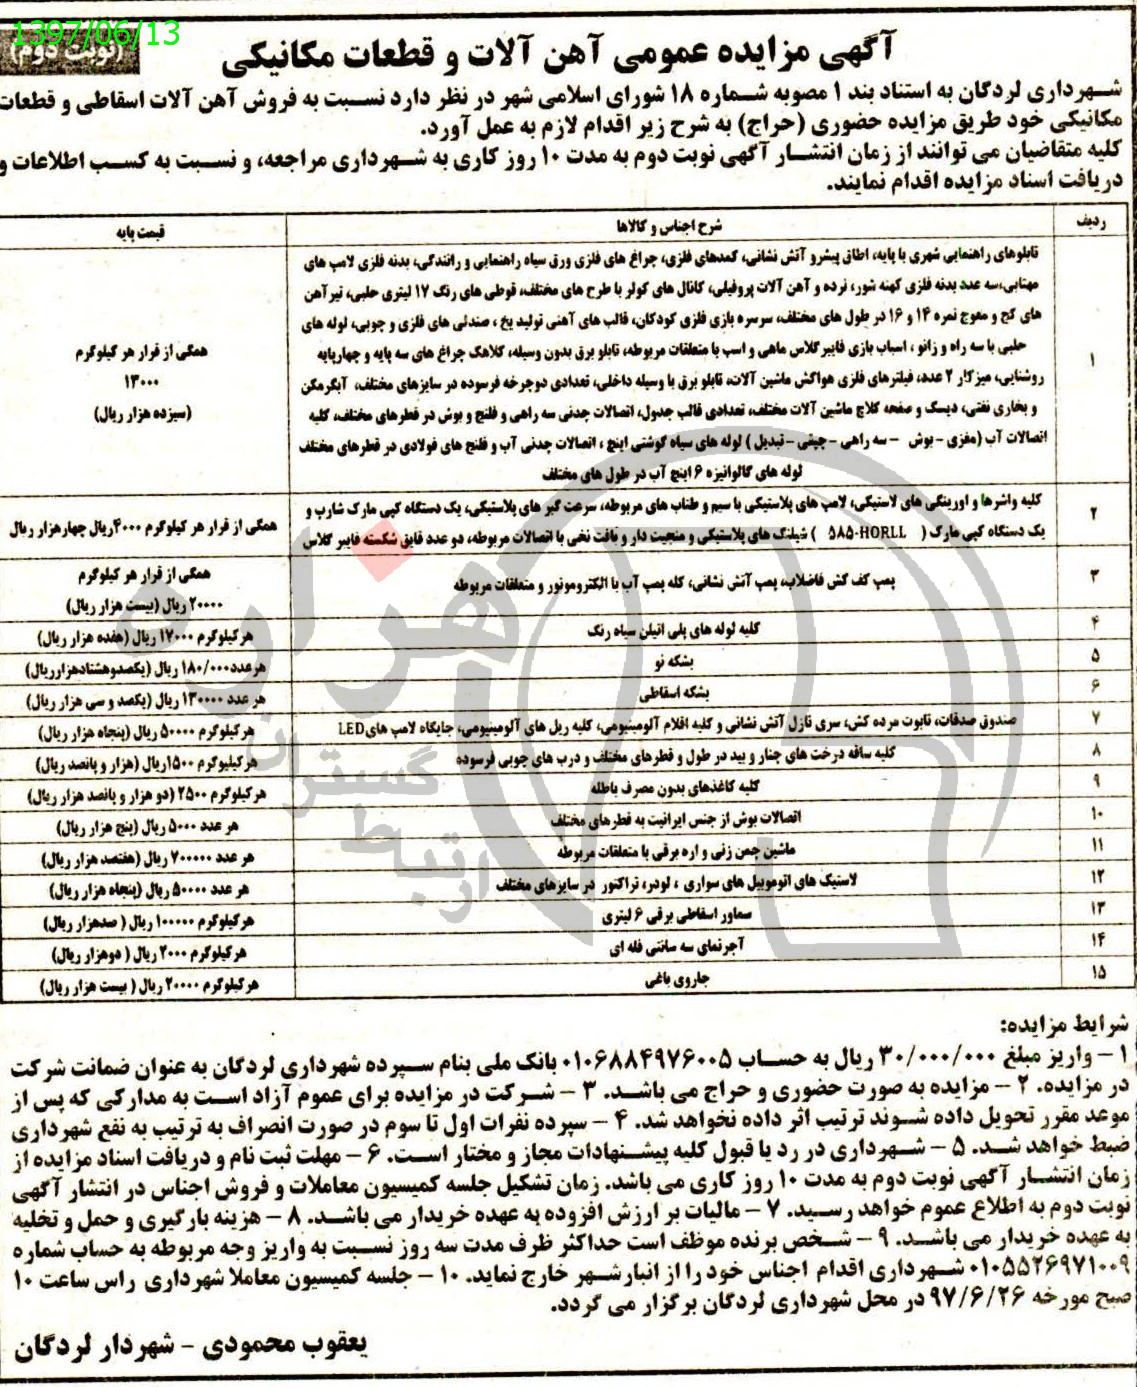 1397/06/13
(نوبت دوم)
آگهی مزایده عمومی آهن آلات و قطعات مکانیکی
شهرداری لردگان به استناد بند ۱ مصوبه شماره ۱۸ شورای اسلامی شهر در نظر دارد نسبت به فروش آهن آلات اسقاطی و قطعات
مکانیکی خود طریق مزایده حضوری (حراج) به شرح زیر اقدام لازم به عمل آورد.
کلیه متقاضیان می توانند از زمان انتشار آگهی نوبت دوم به مدت ۱۰ روز کاری به شهرداری مراجعه، و نسبت به کسب اطلاعات و
دریافت اسناد مزایده اقدام نمایند.
ردیف شرح اجناس و کالاها قیمت پایه
تابلوهای راهنمایی شهری با پایه، اطاق پیشرو آتش نشانی، کمدهای فلزی، چراغ های فلزی ورق سیاه راهنمایی و رانندگی، بدنه فلزی لامپ های
مهتابی،سه عدد بدنه فلزی کهنه شور، نرده و آهن آلات پروفیلی، کانال های کولر با طرح های مختلف، قوطی های رنگ ۱۷ لیتری حلبی، تیرآهن
های کج و معوج نمره ۱۴ و ۱۶ در طول های مختلف، سرسره بازی فلزی کودکان، قالب های آهنی تولید یخ ، صندلی های فلزی و چوبی، لوله های
حلبی با سه راه و زانو ، اسباب بازی فایبرگلاس ماهی و اسب با متعلقات مربوطه، تابلو برق بدون وسیله، کلاهک چراغ های سه پایه و چهارپایه
روشنایی، میزکار ۲ عدد، فیلترهای فلزی هواکش ماشین آلات، تابلو برق با وسیله داخلی، تعدادی دوچرخه فرسوده در سایزهای مختلف، آبگرمکن
و بخاری نفتی، دیسک و صفحه کلاچ ماشین آلات مختلف، تعدادی قالب جدول، اتصالات چدنی سه راهی و فلنج و بوش در قطرهای مختلف، کلیه
اتصالات آب (مغزی - بوش - سه راهی - چپقی - تبدیل ) لوله های سیاه گوشتی اینچ ، اتصالات چدنی آب و فلنج های فولادی در قطرهای مختلف
لوله های گالوانیزه ۶ اینچ آب در طول های مختلف
۱
همگی از قرار هر کیلوگرم
۱۳۰۰۰
(سیزده هزار ریال)
کلیه واشرها و اورینگی های لاستیکی، لامپ های پلاستیکی با سیم و طناب های مربوطه، سرعت گیر های پلاستیکی، یک دستگاه کپی مارک شارپ و
یک دستگاه کپی مارک ( ۵۸۵-HORLL ) شیلنگ های پلاستیکی و منجیت دار و بافت نخی با اتصالات مربوطه، دو عدد قایق شکسته فایبر گلاس
۲ همگی از قرار هر کیلوگرم ۴۰۰۰ریال چهارهزار ریال
۳ پمپ کف کش فاضلاب، پمپ آتش نشانی، کله پمپ آب با الکتروموتور و متعلقات مربوطه همگی از قرار هر کیلوگرم
۲۰۰۰۰ ریال (بیست هزار ریال)
۴ کلیه لوله های پلی اتیلن سیاه رنگ هرکیلوگرم ۱۷۰۰۰ ریال (هفده هزار ریال)
۵ بشکه نو هرعدد۱۸۰/۰۰۰ ریال (یکصدوهشتادهزارریال)
۶ بشکه اسقاطی هر عدد ۱۳۰۰۰۰ ریال (یکصد و سی هزار ریال)
۷ صندوق صدقات، تابوت مرده کش، سری نازل آتش نشانی و کلیه اقلام آلومینیومی، کلیه ریل های آلومینیومی، جایگاه لامپ هایLED هرکیلوگرم ۵۰۰۰۰ ریال (پنجاه هزار ریال)
۸ کلیه ساقه درخت های چنار و بید در طول و قطرهای مختلف و درب های چوبی فرسوده هرکیلیوگرم ۱۵۰۰ریال (هزار و پانصد ریال)
۹ کلیه کاغذهای بدون مصرف باطله هرکیلوگرم ۲۵۰۰ (دو هزار و پانصد هزار ریال)
۱۰ اتصالات بوش از جنس ایرانیت به قطرهای مختلف هر عدد ۵۰۰۰ ریال (پنج هزار ریال)
۱۱ ماشین چمن زنی و اره برقی با متعلقات مربوطه هر عدد ۷۰۰۰۰۰ ریال (هفتصد هزار ریال)
۱۲ لاستیک های اتومبیل های سواری ، لودر، تراکتور در سایزهای مختلف هر عدد ۵۰۰۰۰ ریال (پنجاه هزار ریال)
۱۳ سماور اسقاطی برقی ۶ لیتری هرکیلوگرم ۱۰۰۰۰۰ ریال ( صدهزار ریال)
۱۴ آجرنمای سه سانتی فله ای هرکیلوگرم ۲۰۰۰ ریال ( دوهزار ریال)
۱۵ جاروی باغی هرکیلوگرم ۲۰۰۰۰ ریال ( بیست هزار ریال)
هزاره
گستران
ارتباط
شرایط مزایده:
۱ - واریز مبلغ ۳۰/۰۰۰/۰۰۰ ریال به حساب ۰۱۰۶۸۸۴۹۷۶۰۰۵ بانک ملی بنام سپرده شهرداری لردگان به عنوان ضمانت شرکت
در مزایده. ۲ - مزایده به صورت حضوری و حراج می باشد. ۳ - شرکت در مزایده برای عموم آزاد است به مدارکی که پس از
موعد مقرر تحویل داده شوند ترتیب اثر داده نخواهد شد. ۴ - سپرده نفرات اول تا سوم در صورت انصراف به ترتیب به نفع شهرداری
ضبط خواهد شد. ۵ - شهرداری در رد یا قبول کلیه پیشنهادات مجاز و مختار است. ۶ - مهلت ثبت نام و دریافت اسناد مزایده از
زمان انتشار آگهی نوبت دوم به مدت ۱۰ روز کاری می باشد. زمان تشکیل جلسه کمیسیون معاملات و فروش اجناس در انتشار آگهی
نوبت دوم به اطلاع عموم خواهد رسید. ۷ - مالیات بر ارزش افزوده به عهده خریدار می باشد. ۸ - هزینه بارگیری و حمل و تخلیه
به عهده خریدار می باشد. ۹ - شخص برنده موظف است حداکثر ظرف مدت سه روز نسبت به واریز وجه مربوطه به حساب شماره
۰۱۰۵۵۲۶۹۷۱۰۰۹ شهرداری اقدام اجناس خود را از انبارشهر خارج نماید. ۱۰ - جلسه کمیسیون معاملا شهرداری راس ساعت ۱۰
صبح مورخه ۹۷/۶/۲۶ در محل شهرداری لردگان برگزار می گردد.
یعقوب محمودی - شهردار لردگان